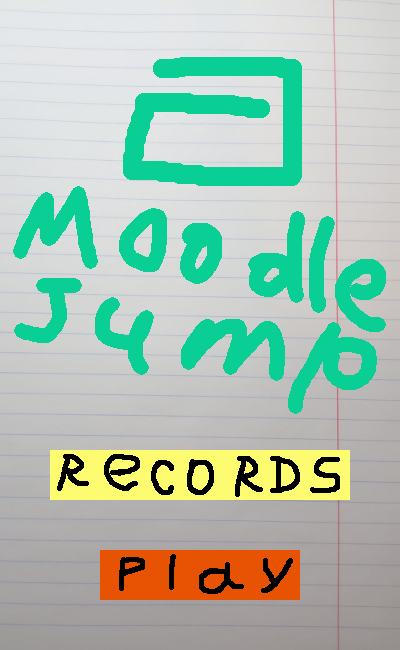 Moodle
Jump
RecoRDS
Play